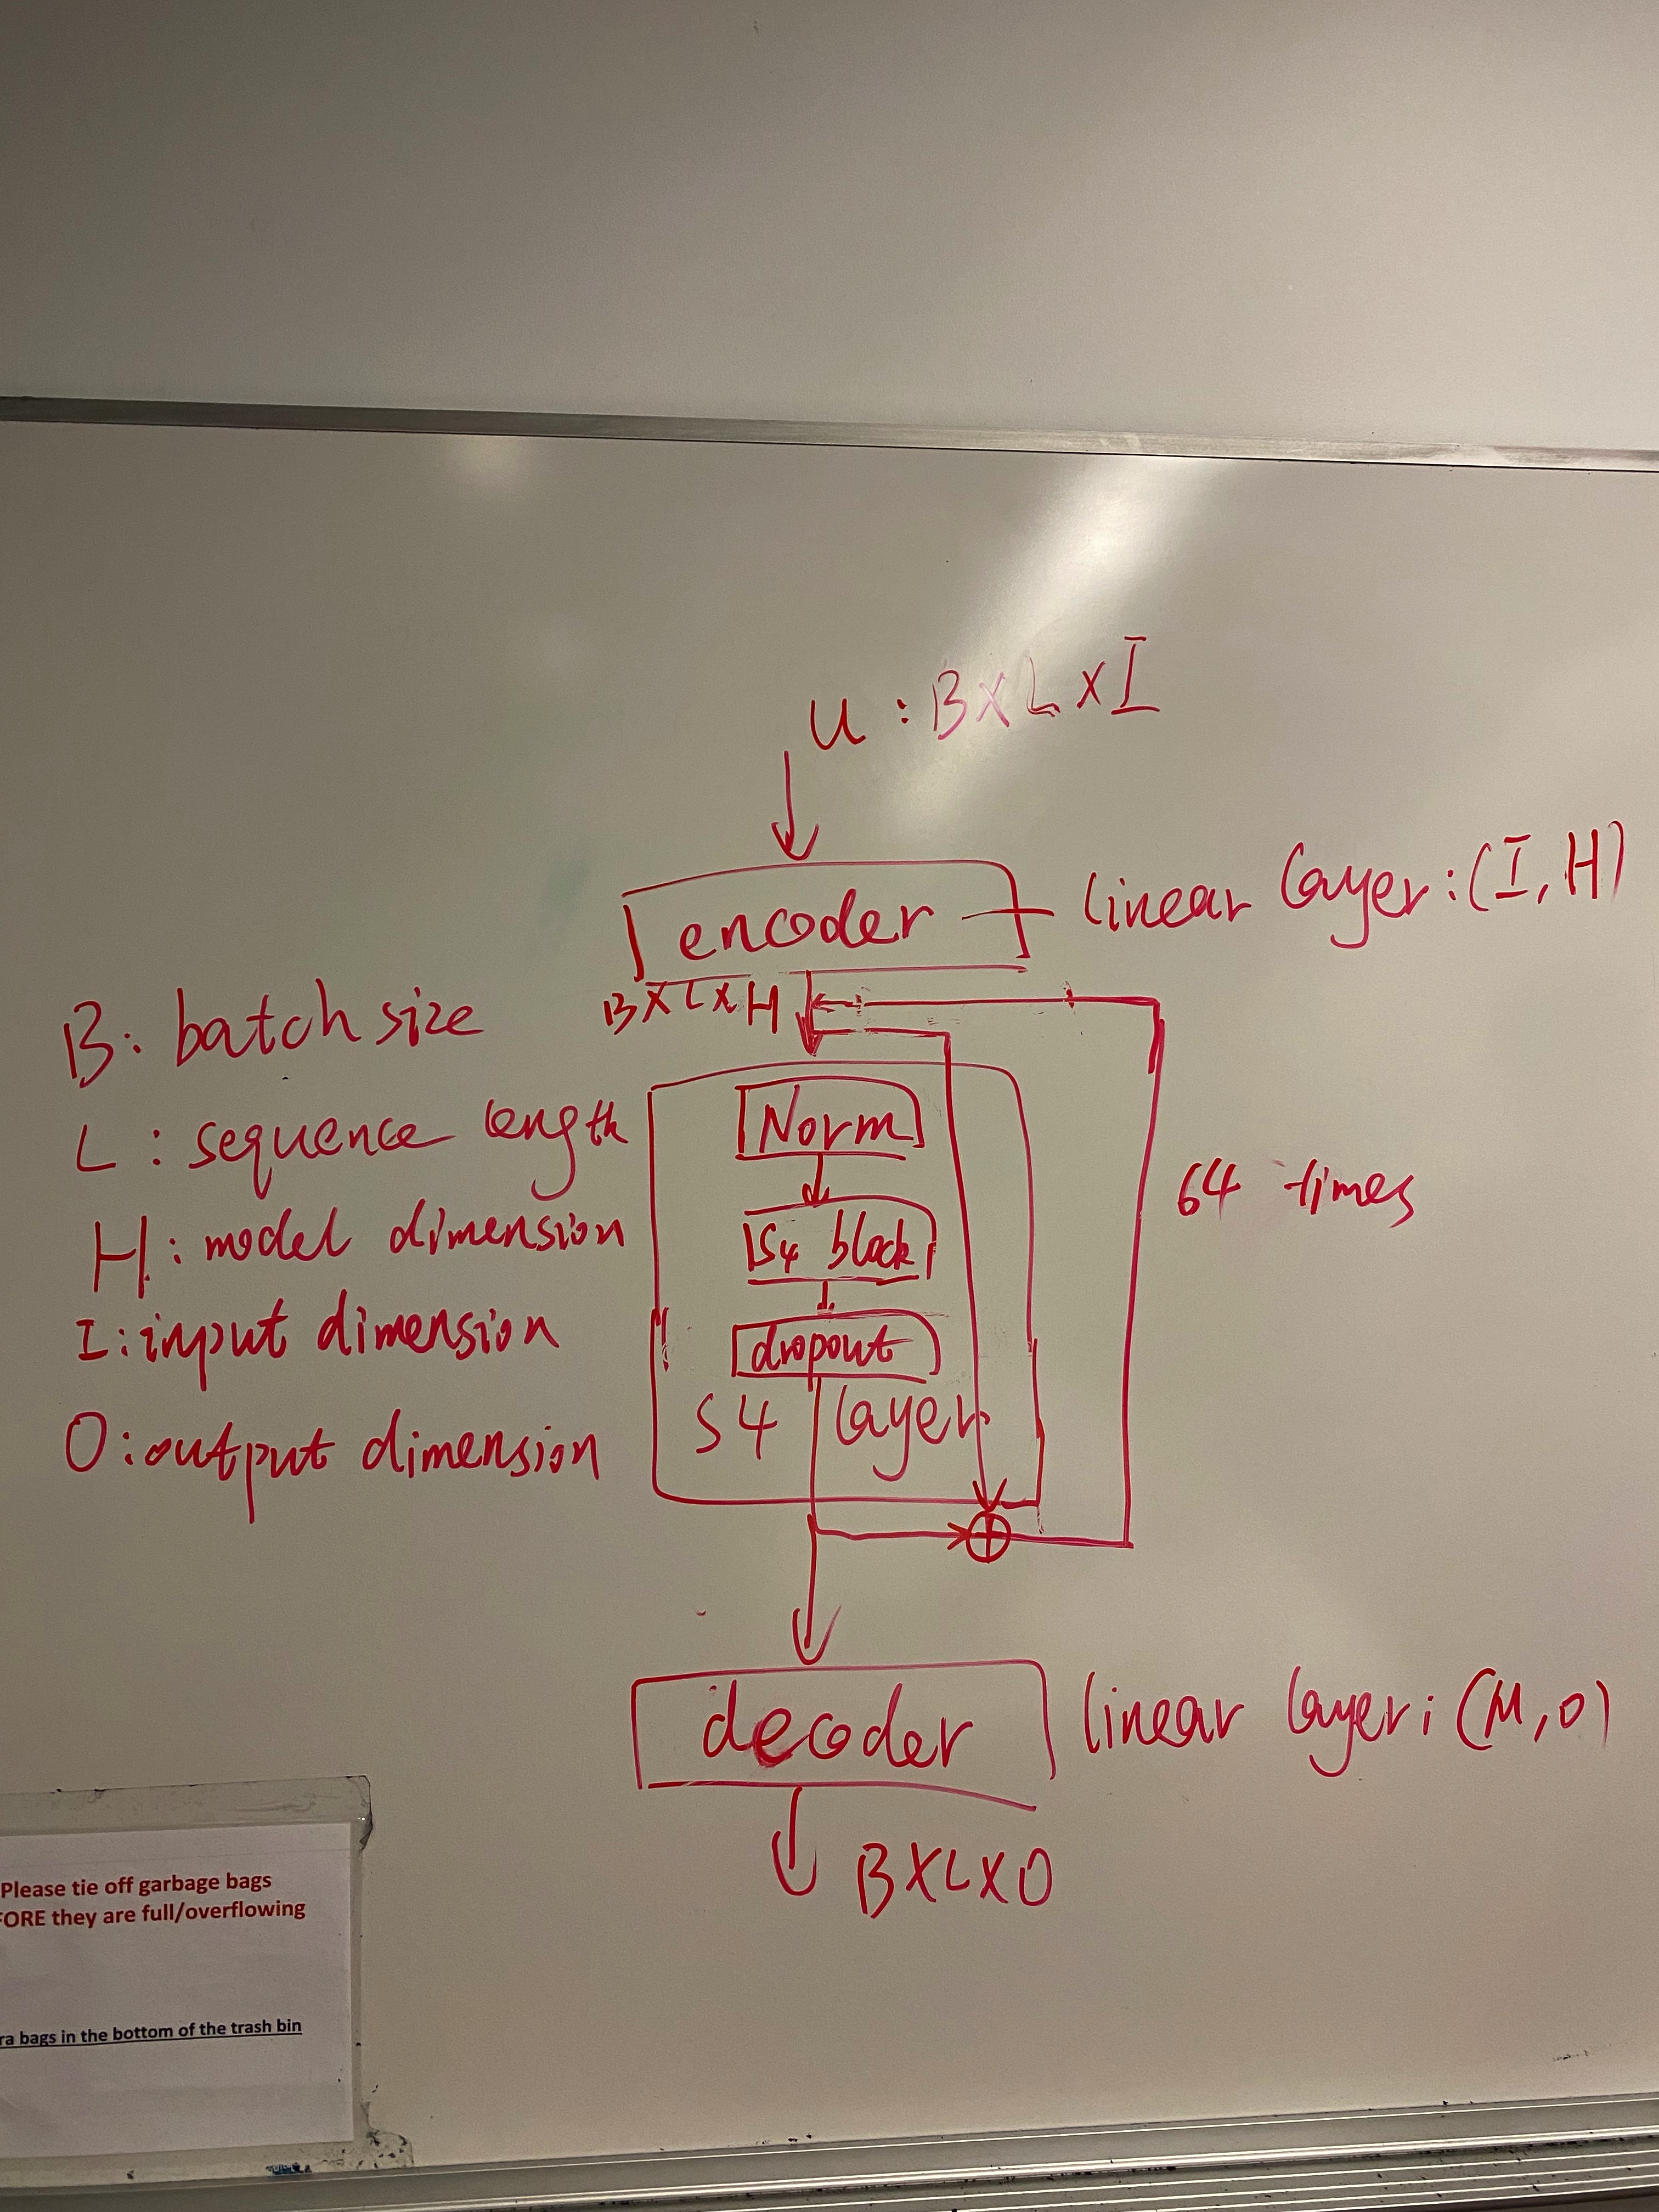 u : B×L×I
encoder
linear layer: (I, H)
B×L×H
B: batch size
L : sequence length
H : model dimension
I: input dimension
O: output dimension
Norm
S4 block
dropout
S4 layer
64 times
decoder
linear layer: (M, O)
B×L×O
Please tie off garbage bags
FORE they are full/overflowing
ra bags in the bottom of the trash bin